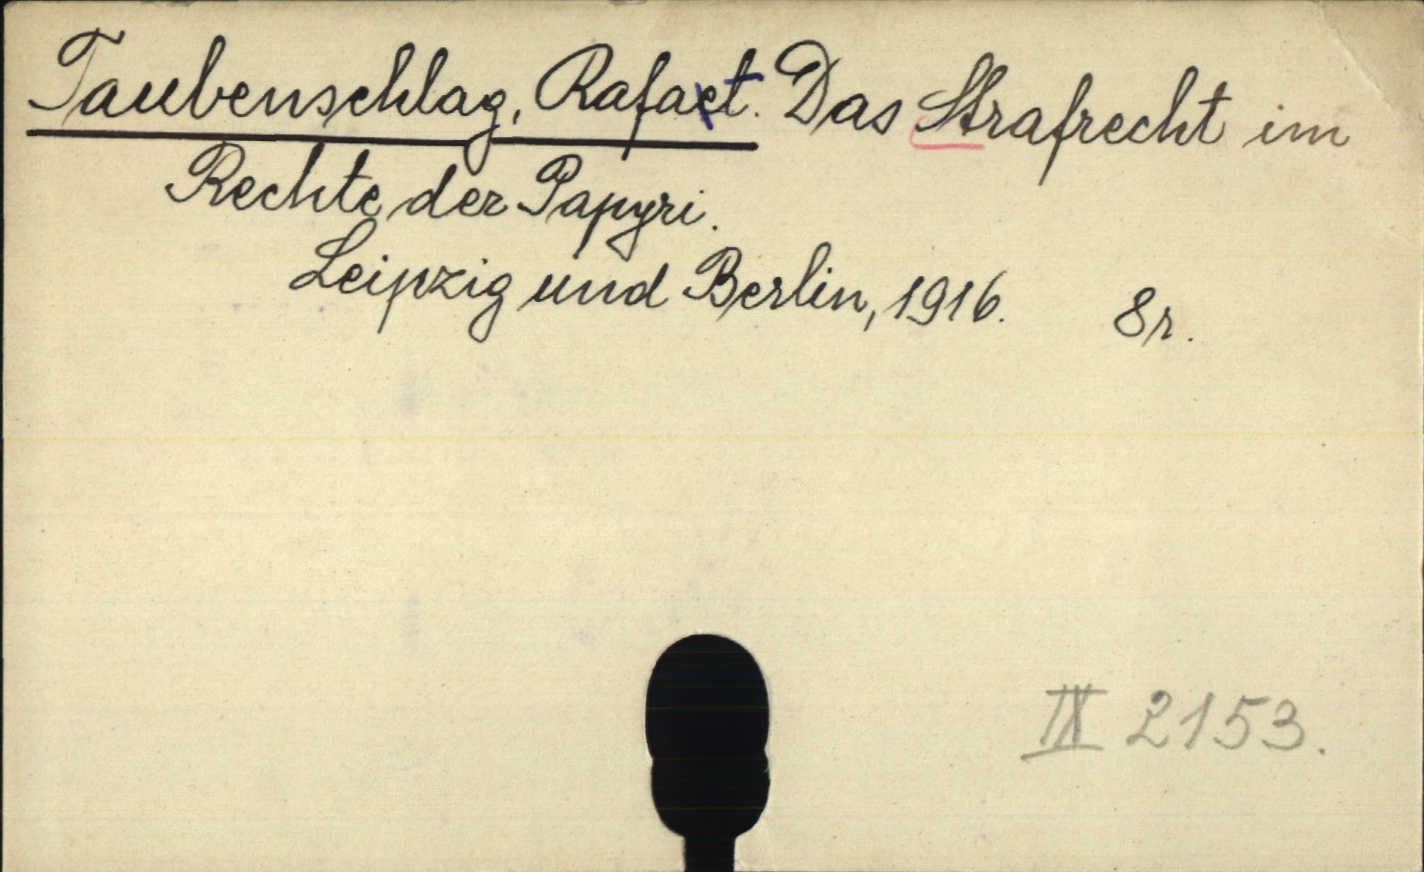 Taubenschlag, Rafaet. Das Strafrecht im
Rechte der Papyri.
Leipzig und Berlin, 1916. 8r.
IX 2153.